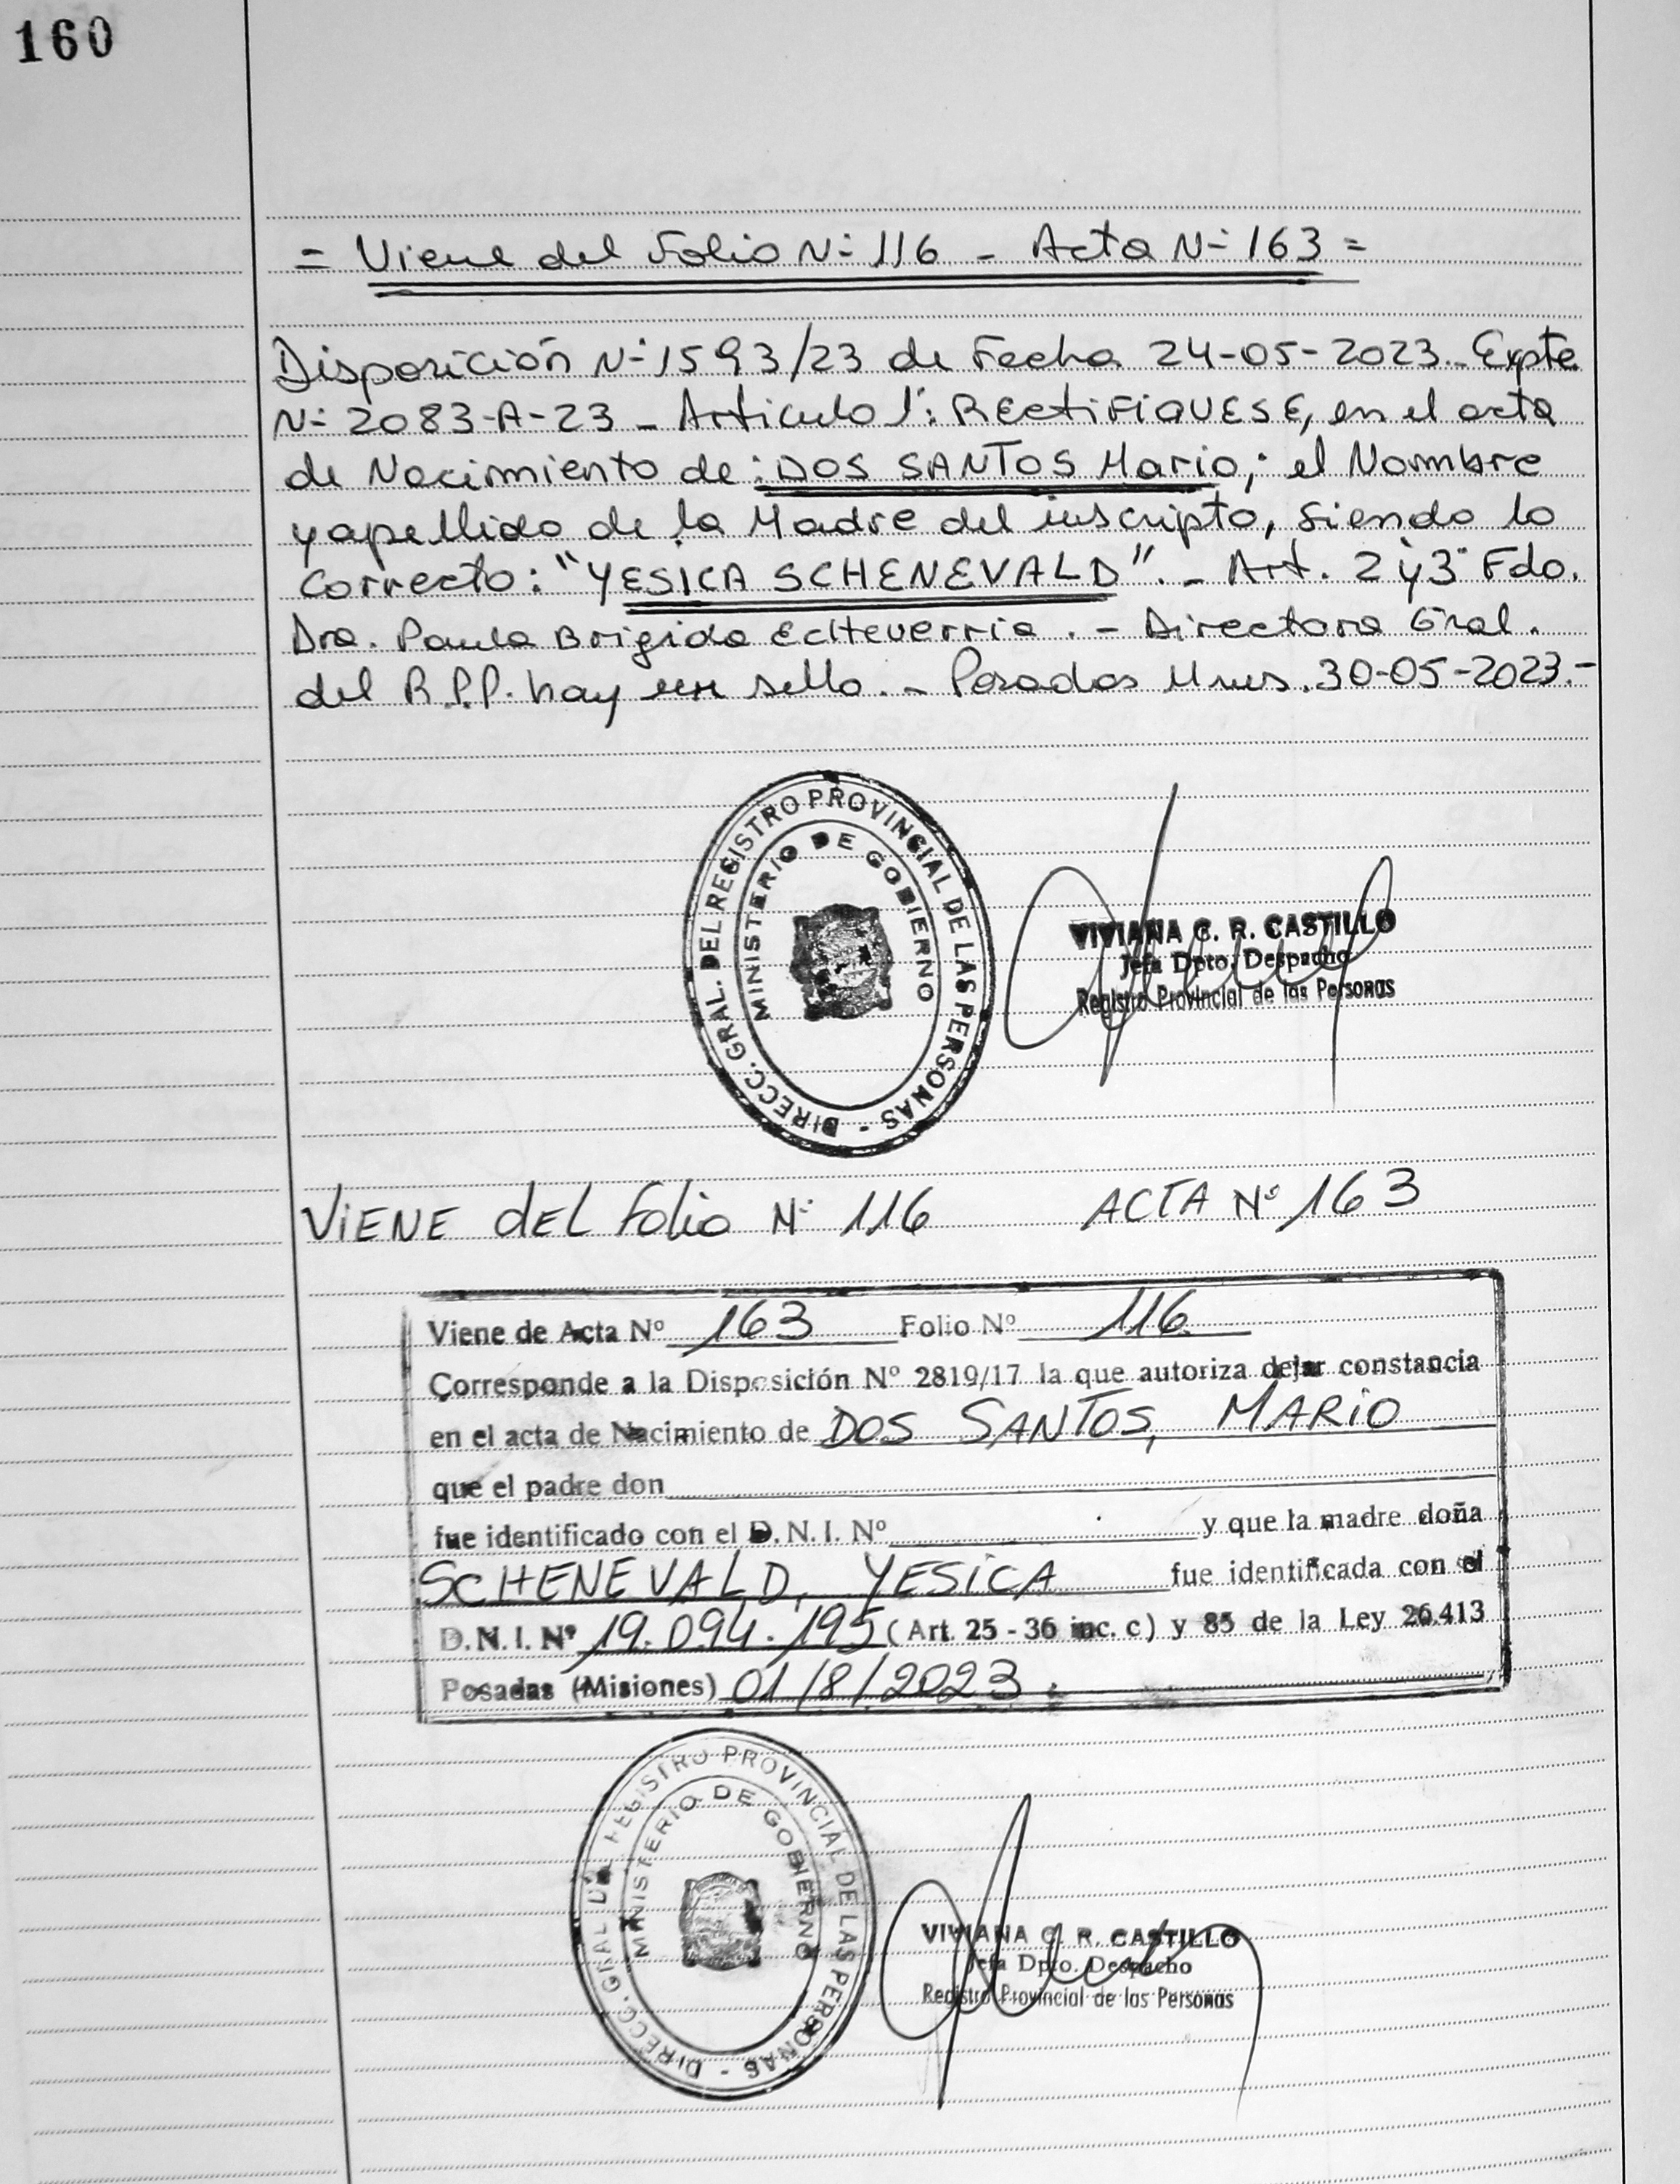 160
= Viene del Folio N° 116 - Acta N° 163 =
Disposición N° 1593/23 de Fecha 24-05-2023.- Expte
N° 2083-A-23 - Articulo 1°: RECTIFIQUESE, en el acta
de Nacimiento de: DOS SANTOS Mario; el Nombre
y apellido de la Madre del inscripto, siendo lo
correcto: "YESICA SCHENEVALD".- Art. 2° y 3° Fdo.
Dra. Paula Brigida Echeverria.- Directora Gral.
del R.P.P. hay un sello.- Posadas Mnes. 30-05-2023.-
DIRECC. GRAL. DEL REGISTRO PROVINCIAL DE LAS PERSONAS -
MINISTERIO DE GOBIERNO
VIVIANA C. R. CASTILLO
Jefa Dpto. Despacho
Registro Provincial de las Personas
VIENE DEL Folio N° 116 ACTA N° 163
Viene de Acta Nº 163 Folio Nº 116
Corresponde a la Disposición Nº 2819/17 la que autoriza dejar constancia
en el acta de Nacimiento de DOS SANTOS, MARIO
que el padre don
fue identificado con el D.N.I. Nº y que la madre doña
SCHENEVALD, YESICA fue identificada con el
D.N.I. Nº 19.094.195 (Art. 25 - 36 inc. c) y 85 de la Ley 26.413
Posadas (Misiones) 01/8/2023.
DIRECC. GRAL DEL REGISTRO PROVINCIAL DE LAS PERSONAS -
MINISTERIO DE GOBIERNO
VIVIANA C. R. CASTILLO
Jefa Dpto. Despacho
Registro Provincial de las Personas